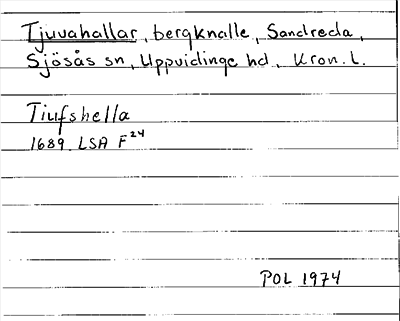 Tjuvahallar, bergknalle, Sandreda,
Sjösås sn, Uppvidinge hd, Kron. l.
Tiufshella
1689 LSA F24
POL 1974